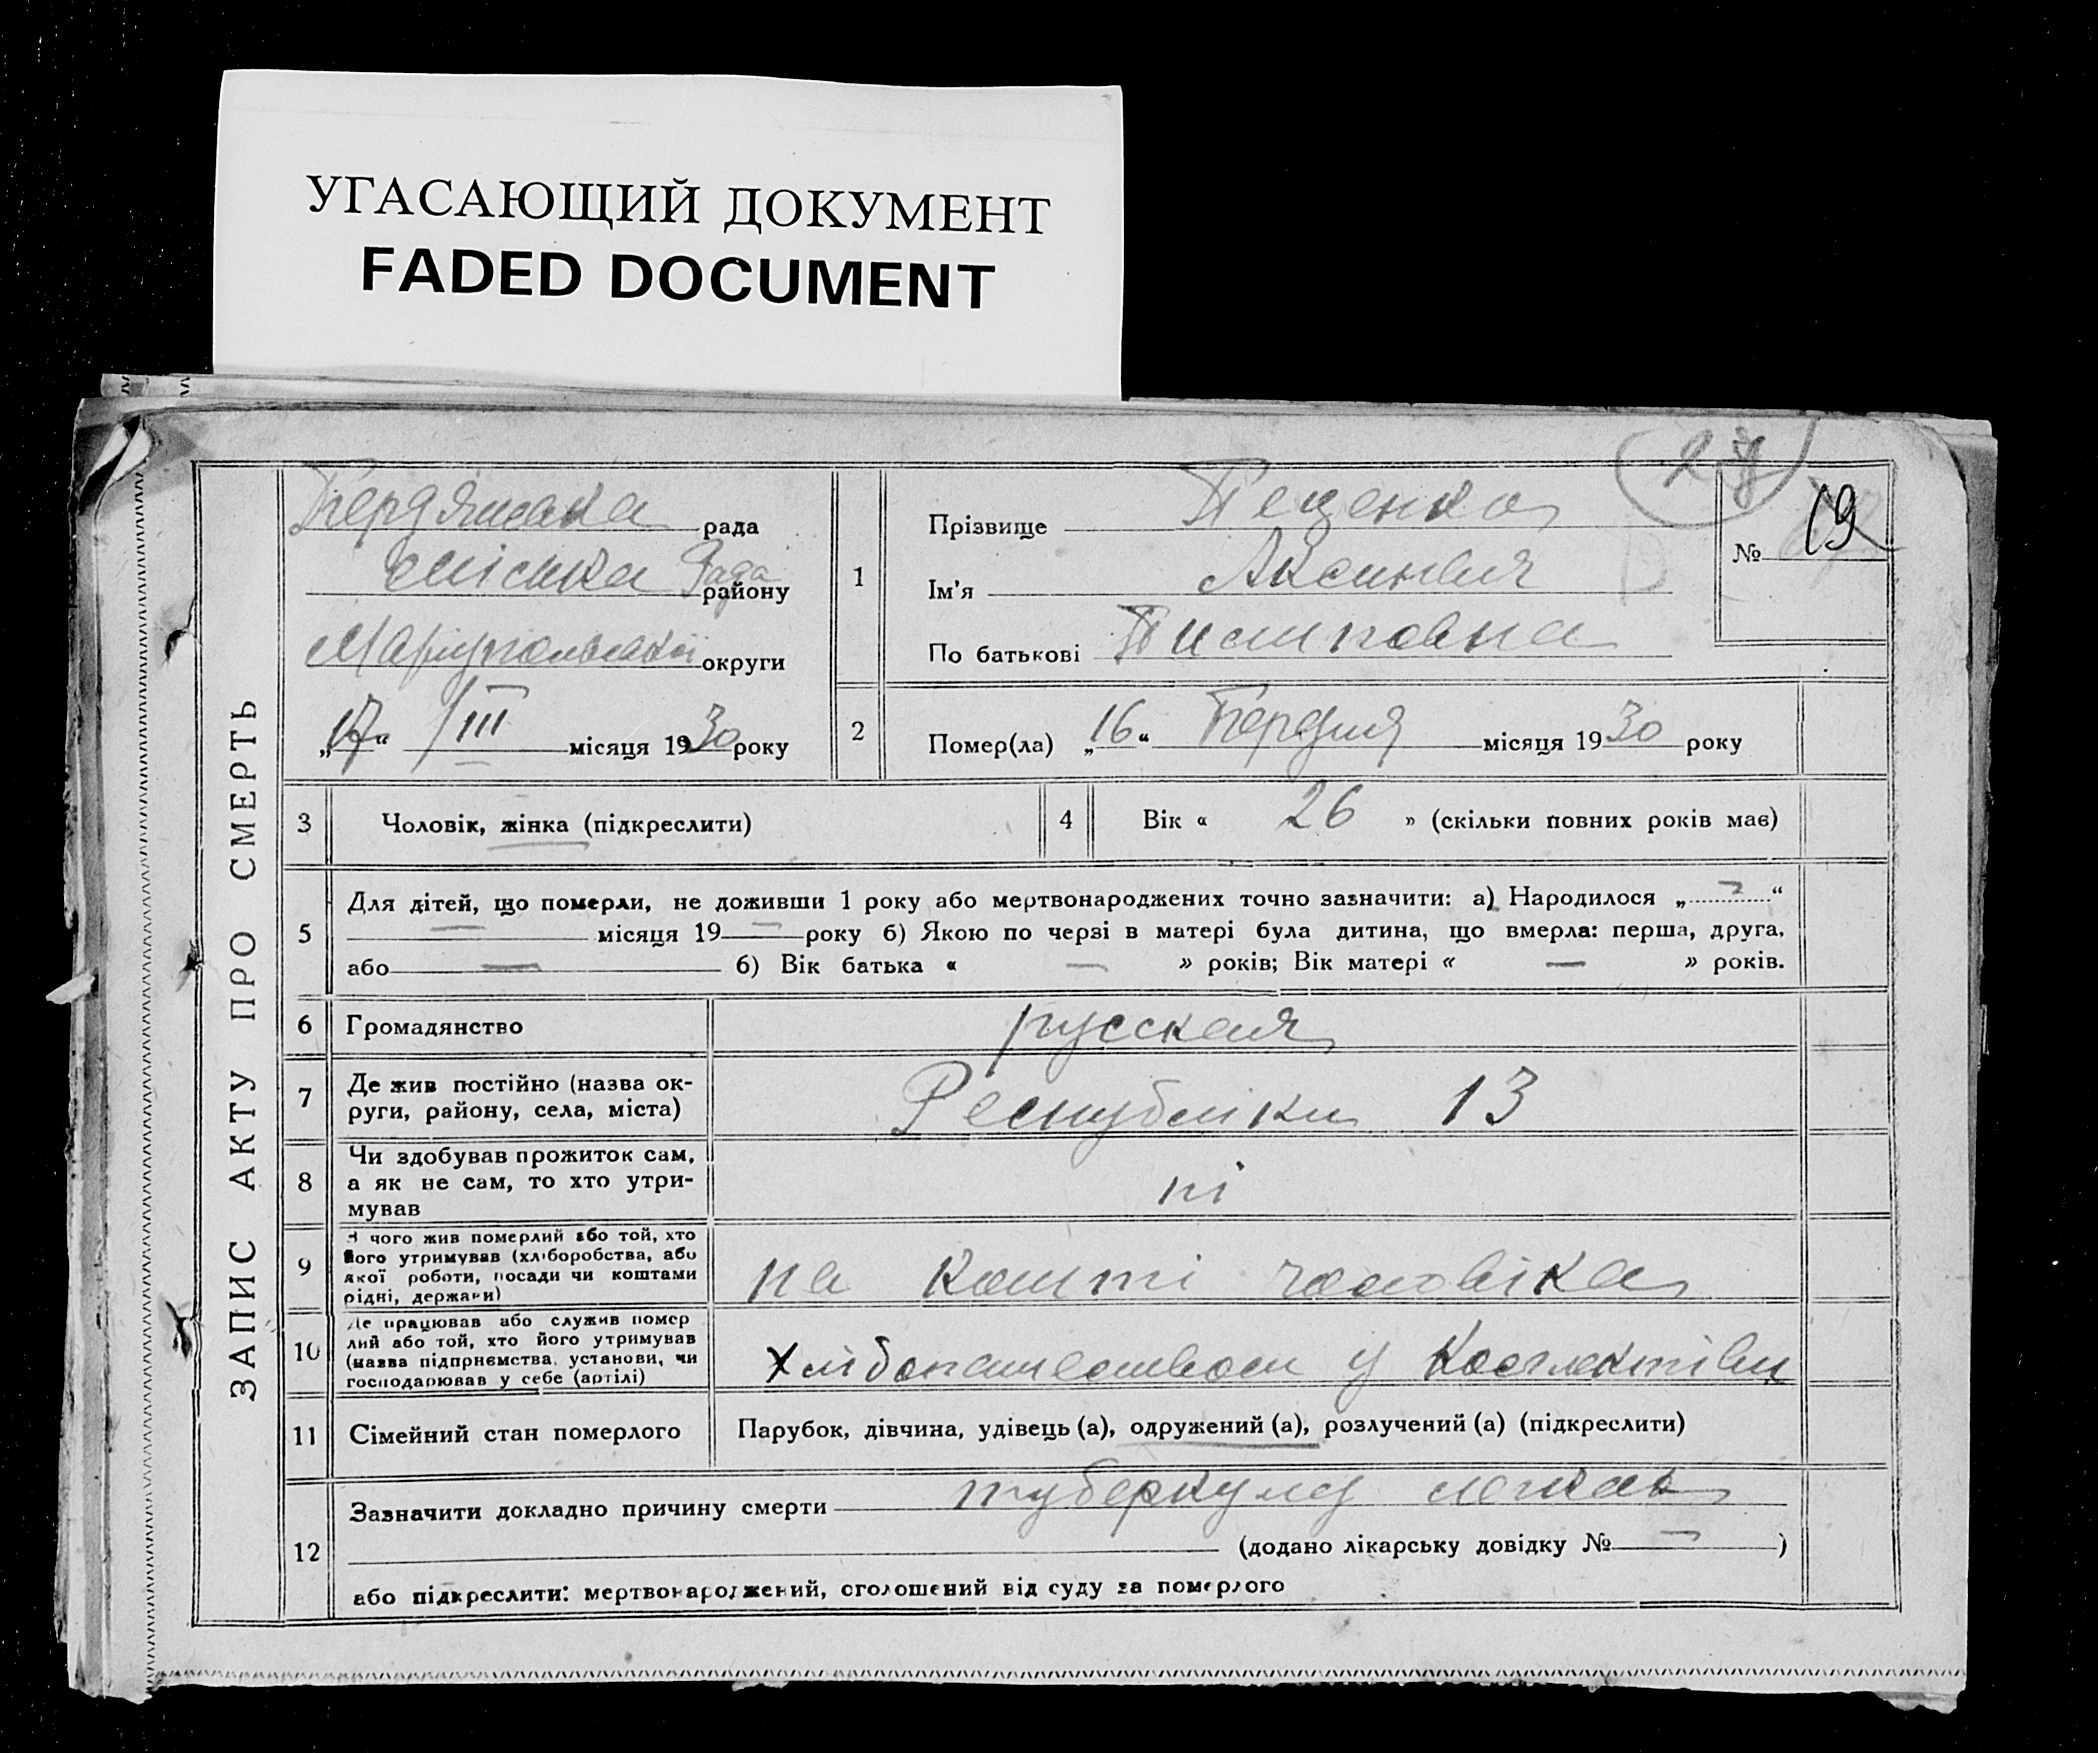 УГАСАЮЩИЙ ДОКУМЕНТ
FADED DOCUMENT
ЗАПИС АКТУ ПРО СМЕРТЬ
Бердянська рада
міська Рада району
Маріупольської округи
„17“ III місяця 1930 року
1
Прізвище Пеценко
Ім'я Аксинья
По батькові
№ 19
2
Помер(ла) „16“ Березня місяця 1930 року
3
Чоловік, жінка (підкреслити)
4
Вік « 26 » (скільки повних років має)
5
Для дітей, що померли, не доживши 1 року або мертвонароджених точно зазначити: а) Народилося „ — “
— місяця 19 — року б) Якою по черзі в матері була дитина, що вмерла: перша, друга,
або — б) Вік батька « — » років; Вік матері « — » років.
6
Громадянство
русская
7
Де жив постійно (назва ок-
руги, району, села, міста)
Республіки 13
8
Чи здобував прожиток сам,
а як не сам, то хто утри-
мував
ні
9
З чого жив померлий або той, хто
його утримував (хліборобства, або
якої роботи, посади чи коштами
рідні, держави)
на кошті чоловіка
10
Де працював або служив помер
лий або той, хто його утримував
(назва підприємства, установи, чи
господарював у себе (артілі)
у Коллективи
11
Сімейний стан померлого
Парубок, дівчина, удівець (а), одружений (а), розлучений (а) (підкреслити)
12
Зазначити докладно причину смерти туберкулез легких
(додано лікарську довідку № — )
або підкреслити: мертвонароджений, оголошений від суду за померлого